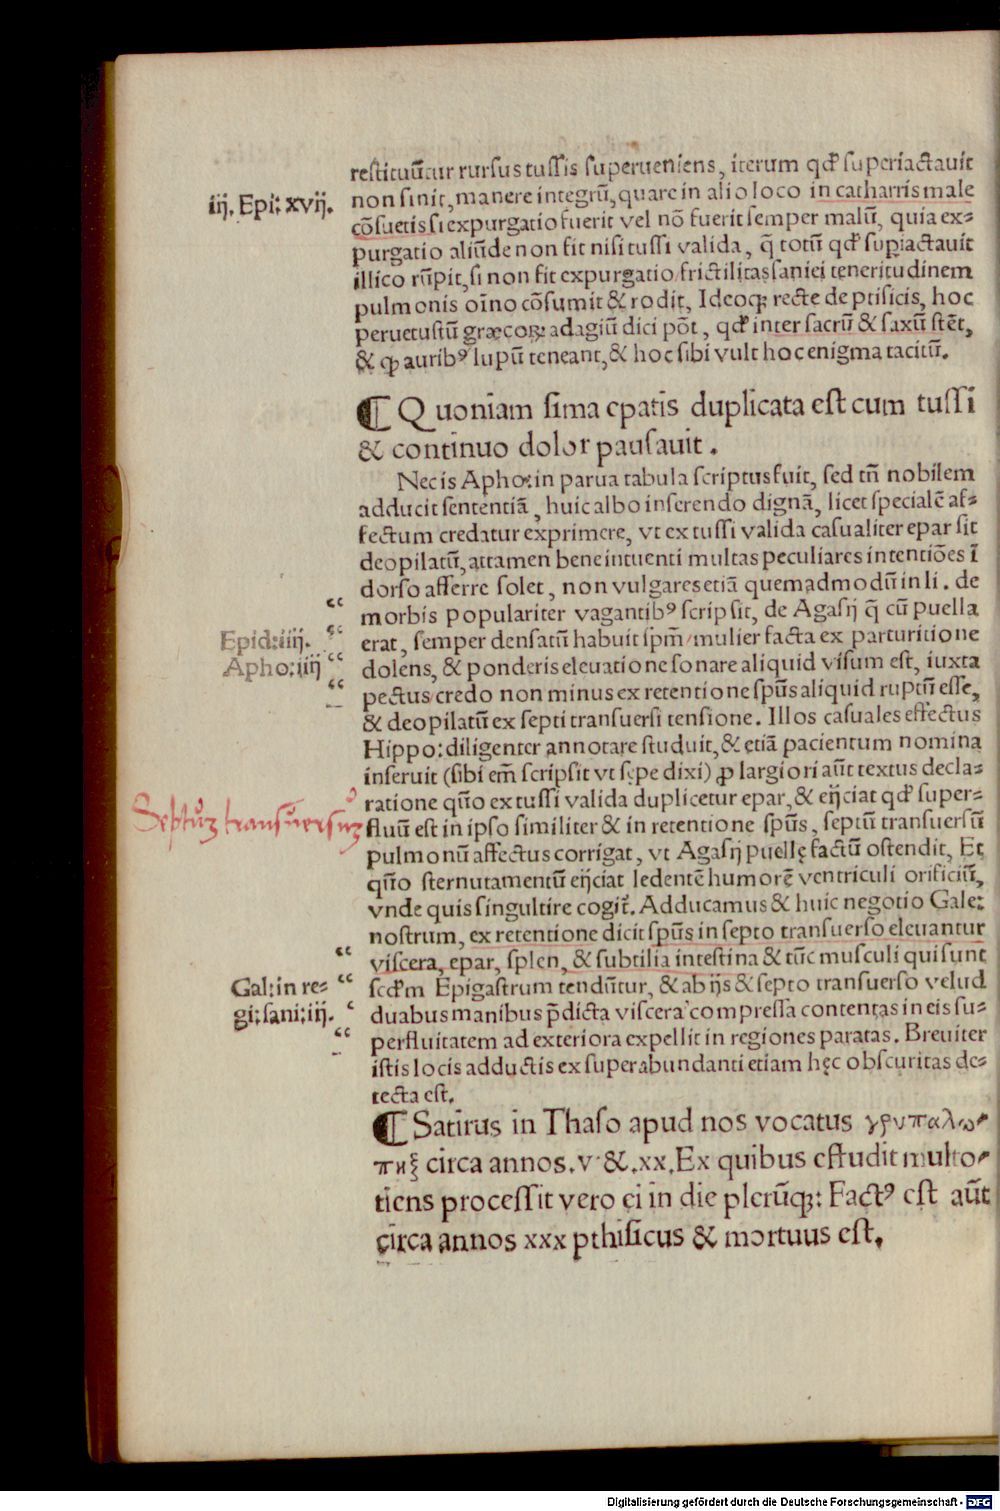 restituũtur rursus tussis superueniens, iterum qđ superiactauit
iij. Epi: xvij.
non sinit, manere integrũ, quare in alio loco in catharris male
cõsuetis si expurgatio fuerit vel nõ fuerit semper malũ, quia ex-
purgatio aliũde non fit nisi tussi valida, q̃ totũ qđ supiactauit
illico rũpit, si non fit expurgatio/frictilitas saniei teneritudinem
pulmonis oĩno cõsumit & rodit, Ideoqꝫ recte de ptisicis, hoc
peruetustũ græcoꝝ adagiũ dici põt, qđ inter sacrũ & saxũ stẽt,
& ꝙ auribꝰ lupũ teneant, & hoc sibi vult hoc enigma tacitũ.
¶ Quoniam sima epatis duplicata est cum tussi
& continuo dolor pausauit.
Nec is Apho: in parua tabula scriptus fuit, sed tñ nobilem
adducit sententiã, huic albo inserendo dignã, licet specialẽ af-
fectum credatur exprimere, vt ex tussi valida casualiter epar sit
deopilatũ, attamen bene intuenti multas peculiares intentiões ĩ
dorso afferre solet, non vulgares etiã quemadmodũ in li. de
morbis populariter vagantibꝰ scripsit, de Agasij q̃ cũ puella
Epid: iiij.
erat, semper densatũ habuit spm̃/mulier facta ex parturitione
Apho: iiij
dolens, & ponderis eleuatione sonare aliquid visum est, iuxta
pectus/credo non minus ex retentione spũs aliquid ruptũ esse,
& deopilatũ ex septi transuersi tensione. Illos casuales effectus
Hippo: diligenter annotare studuit, & etiã pacientum nomina
inseruit (sibi em̃ scripsit vt sępe dixi) ꝓ largiori aũt textus decla-
Septũ transũersũ
ratione quõ ex tussi valida duplicetur epar, & eijciat qđ super-
fluũ est in ipso similiter & in retentione spũs, septũ transuersũ
pulmonũ affectus corrigat, vt Agasij puellę factũ ostendit, Et
quõ sternutamentũ eijciat ledentẽ humorẽ ventriculi orificiũ,
vnde quis singultire cogit̃. Adducamus & huic negotio Gale:
nostrum, ex retentione dicit spũs in septo transuerso eleuantur
viscera, epar, splen, & subtilia intestina & tũc musculi qui sunt
Gal: in re-
scđm Epigastrum tendũtur, & ab ijs & septo transuerso velud
gi: sani: iij.
duabus manibus p̃dicta viscera compressa contentas in eis su-
perfluitatem ad exteriora expellit in regiones paratas. Breuiter
istis locis adductis ex superabundanti etiam hęc obscuritas de-
tecta est.
¶ Satirus in Thaso apud nos vocatus γρυπαλω-
πηξ circa annos. v. &. xx. Ex quibus effudit multo-
tiens processit vero ei in die plerũqꝫ: Factꝰ est aũt
circa annos xxx pthisicus & mortuus est.
Digitalisierung gefördert durch die Deutsche Forschungsgemeinschaft - DFG